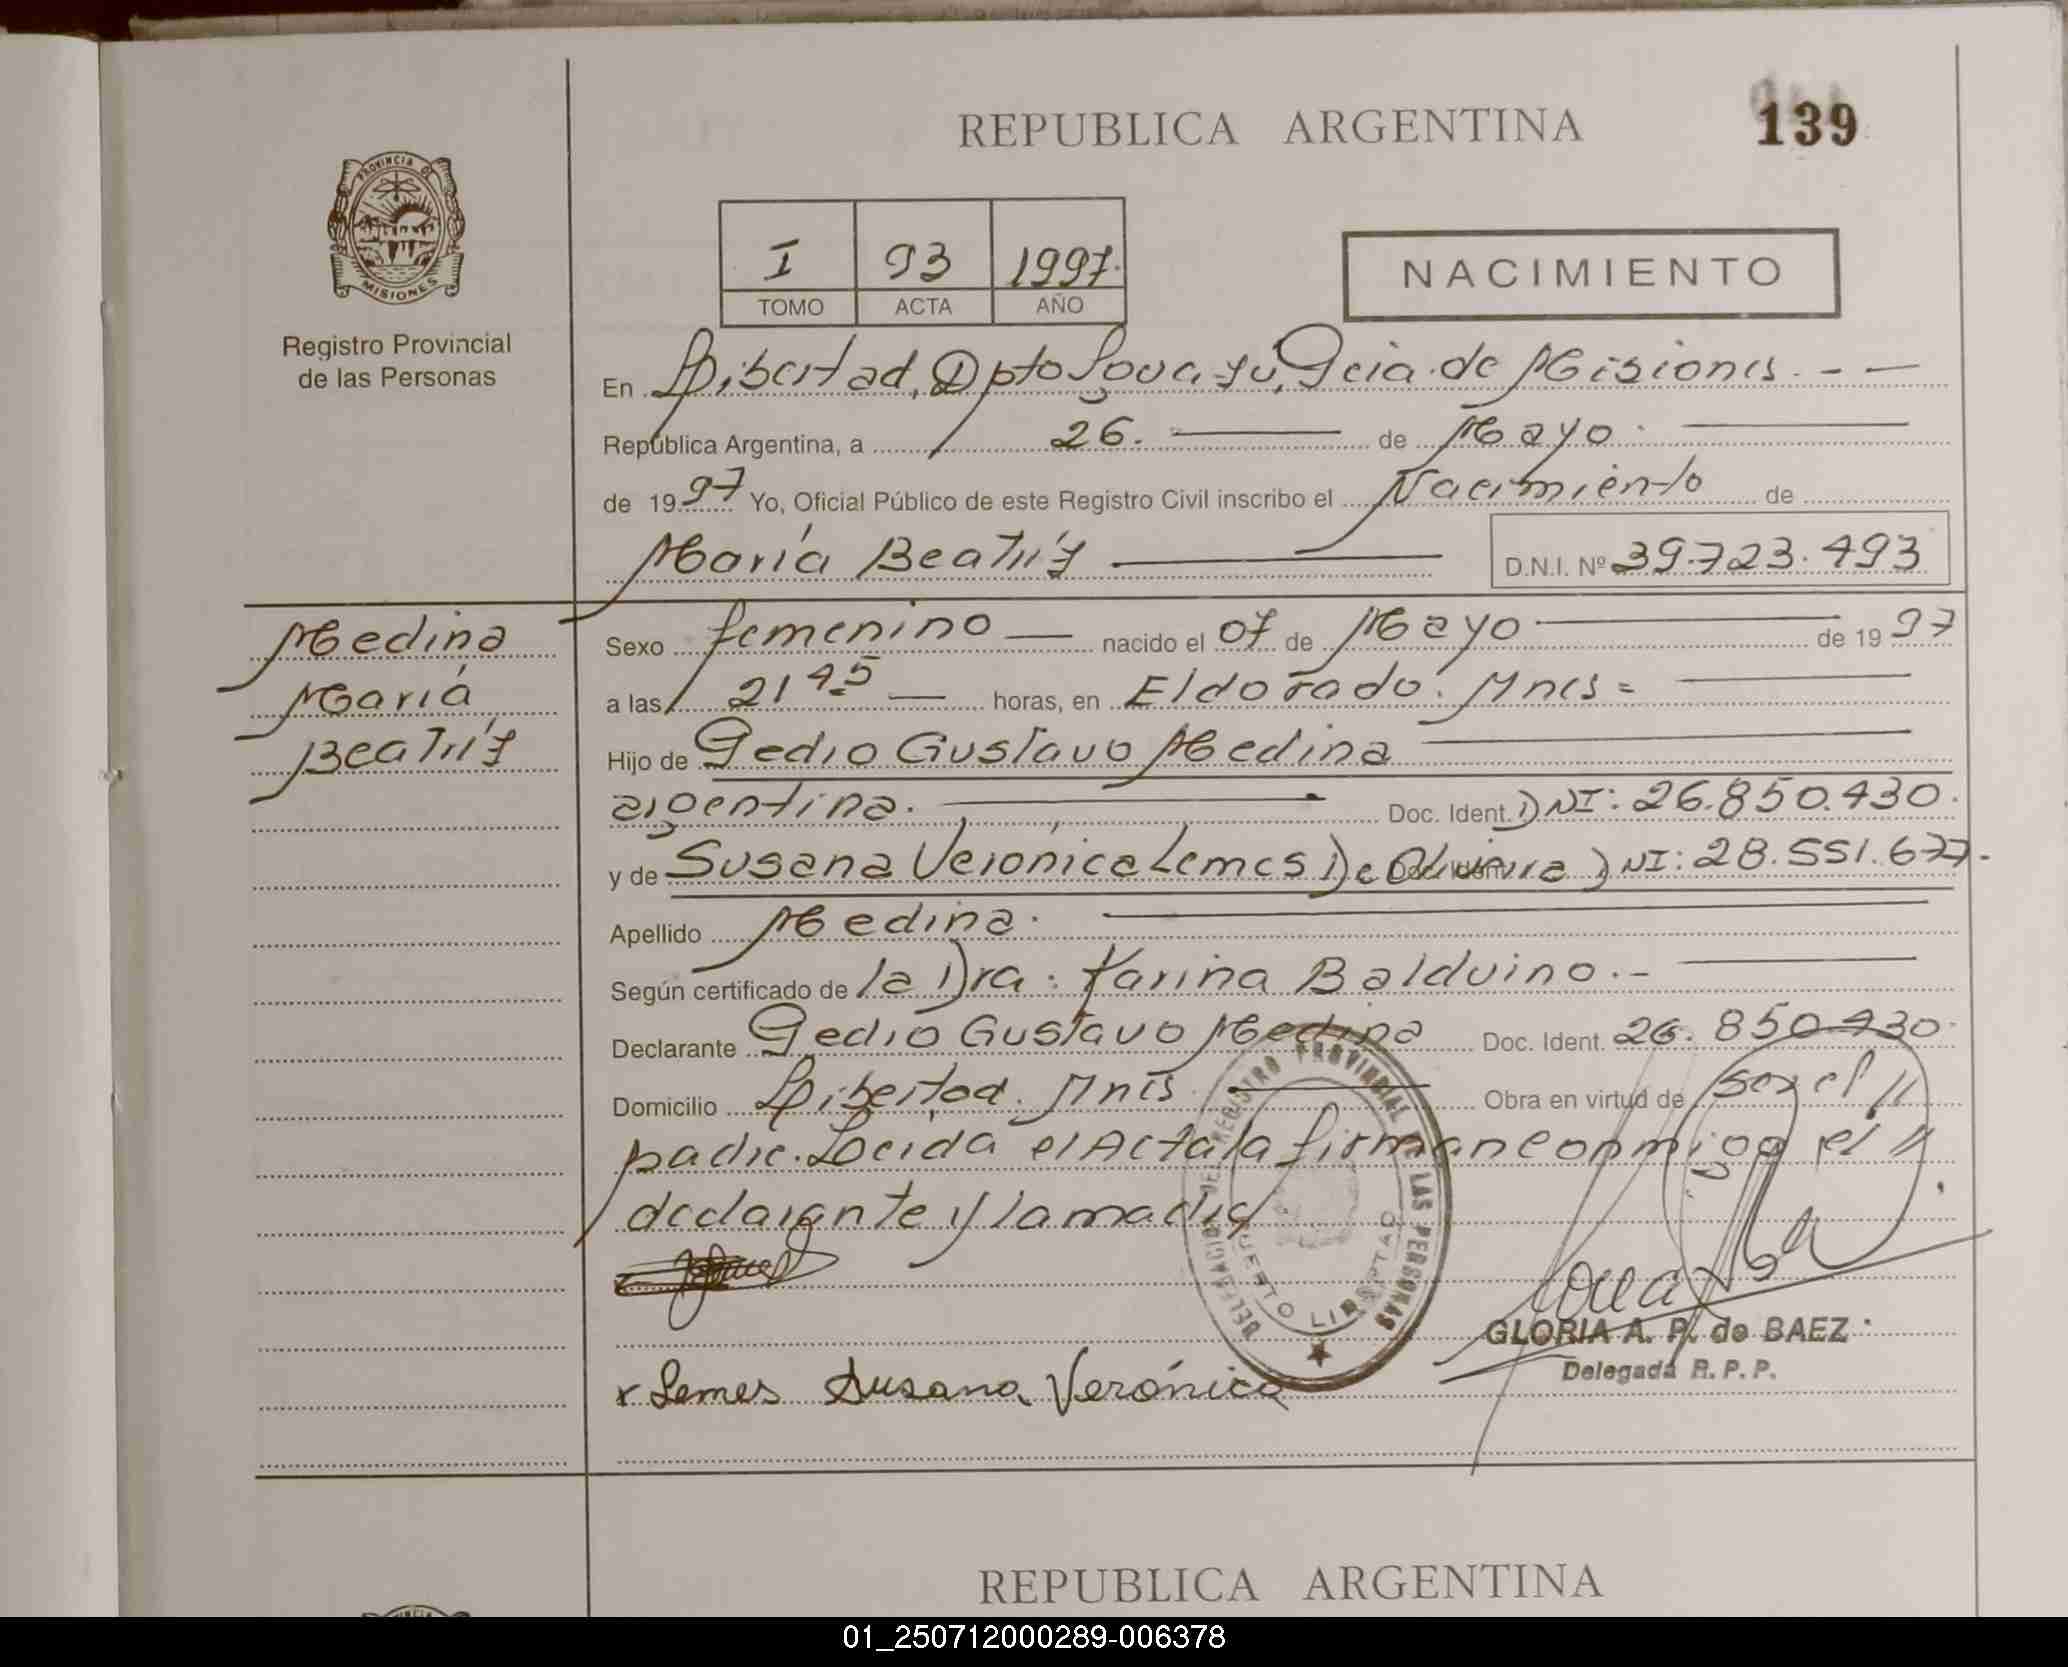 REPUBLICA ARGENTINA
139
PROVINCIA DE
MISIONES
Registro Provincial
de las Personas
I 93 1997
TOMO ACTA AÑO
NACIMIENTO
En Libertad, Dpto Iguazú, Pcia. de Misiones. - —
República Argentina, a 26. — de Mayo. —
de 1997 Yo, Oficial Público de este Registro Civil inscribo el Nacimiento de
María Beatríz — D.N.I. Nº 39.723.493
Medina
María
Beatríz
Sexo femenino — nacido el 07 de Mayo — de 1997
a las 21 45 — horas, en Eldorado. Mnes = —
Hijo de Pedro Gustavo Medina —
argentina. — Doc. Ident. DNI: 26.850.430.
y de Susana Verónica Lemes De Oliveira DNI: 28.551.677.-
Apellido Medina. —
Según certificado de la Dra: Karina Balduino.- —
Declarante Pedro Gustavo Medina Doc. Ident. 26.850.430.
Domicilio Libertad. Mnes — Obra en virtud de ser el //
padre. Leída el Acta la firman conmigo el //
declarante y la madre
DELEGACION DEL REGISTRO PROVINCIAL DE LAS PERSONAS
PUERTO LIBERTAD
GLORIA A. P. de BAEZ
Delegada R. P. P.
x Lemes Susana Verónica
REPUBLICA ARGENTINA
01_250712000289-006378